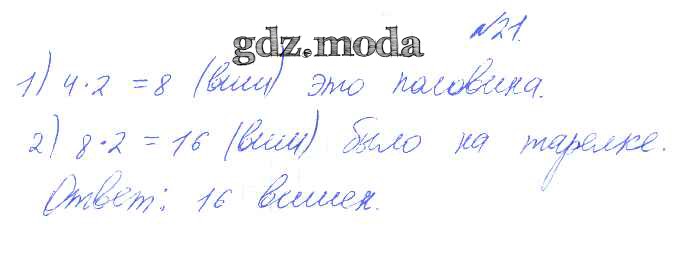 №21.
gdz.moda
1) 4·2 = 8 (виш) это половина.
2) 8·2 = 16 (виш) было на тарелке.
Ответ: 16 вишен.